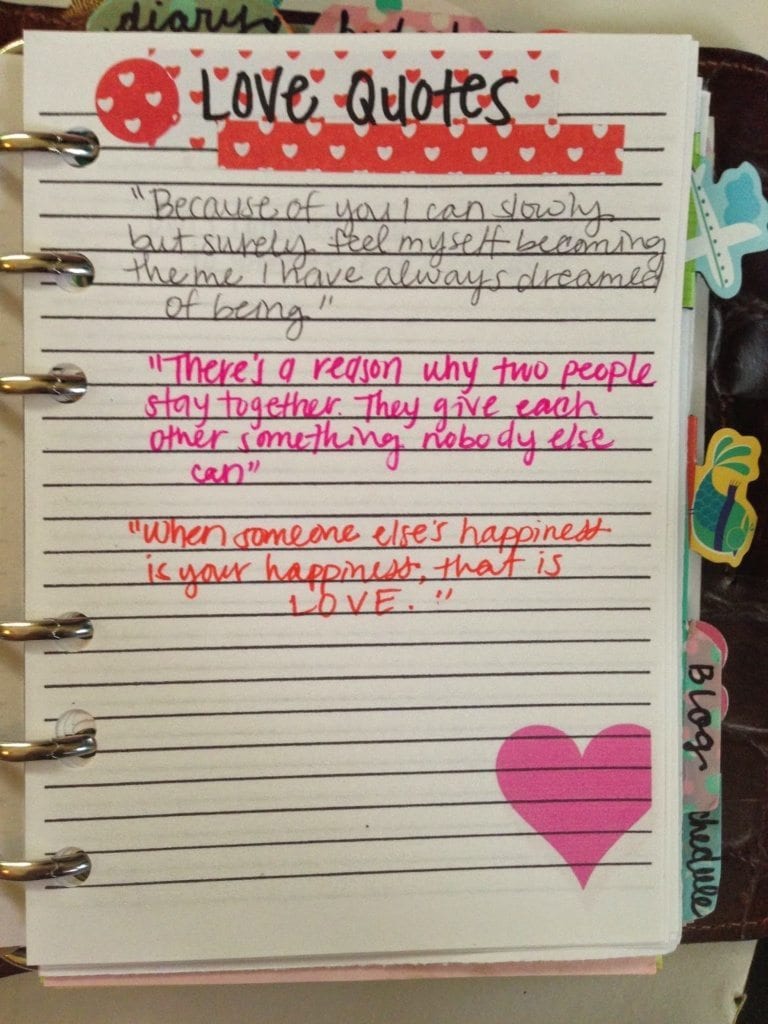 diary
LOVE QUOTES
"Because of you I can slowly
but surely feel myself becoming
the me I have always dreamed
of being"
"There's a reason why two people
stay together. They give each
other something nobody else
can"
"When someone else's happiness
is your happiness, that is
LOVE."
BLOG
chedule